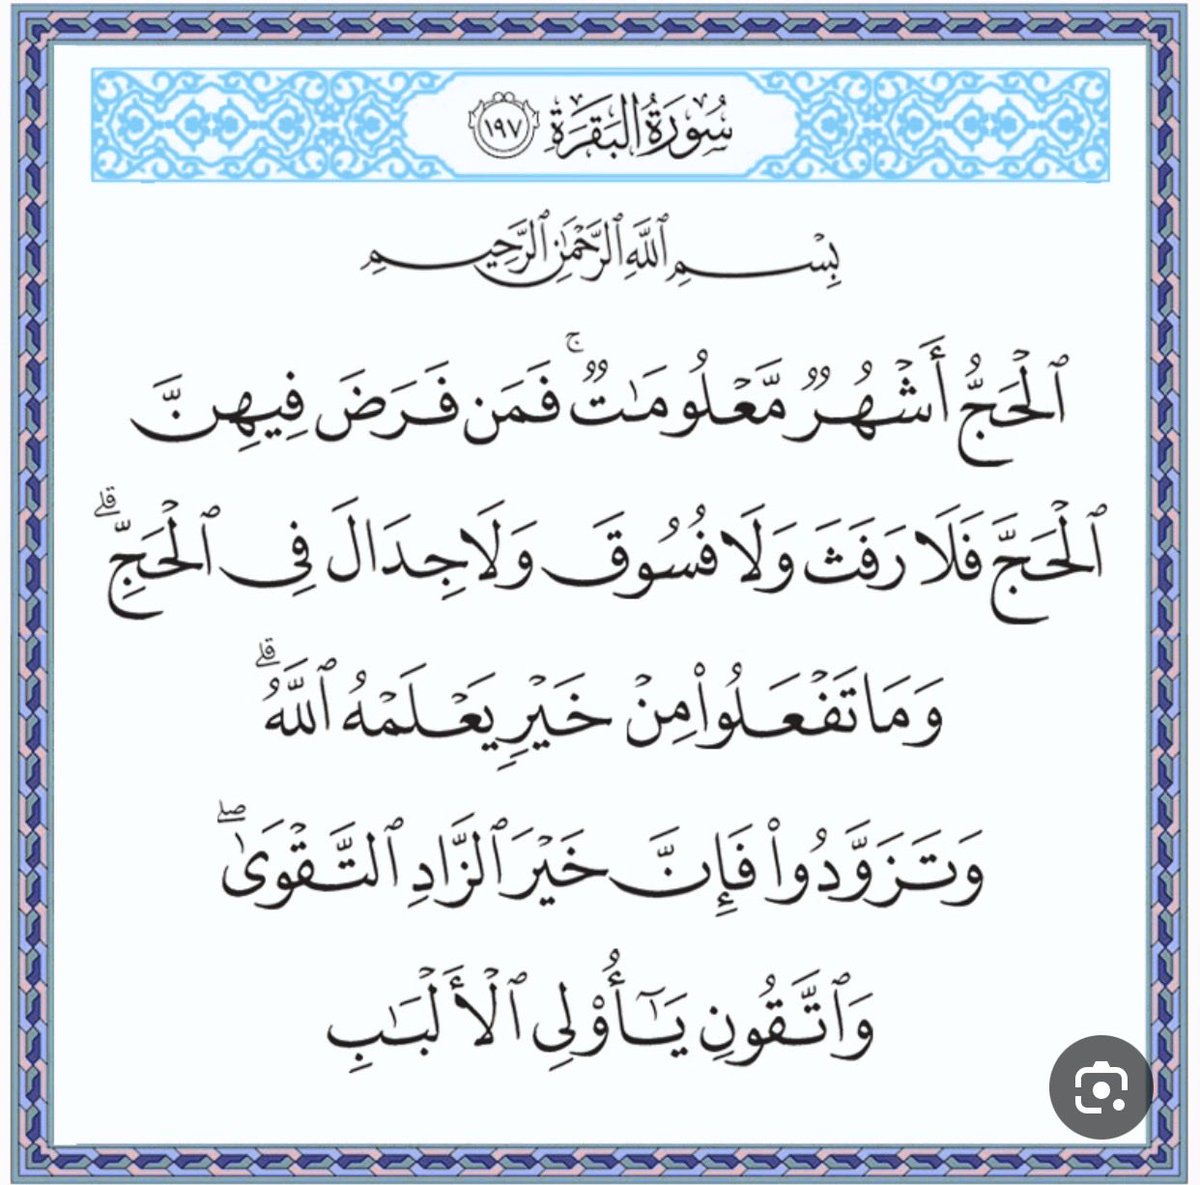 سُورَةُ البَقَرَةِ ١٩٧
بِسْمِ ٱللَّهِ ٱلرَّحْمَٰنِ ٱلرَّحِيمِ
ٱلْحَجُّ أَشْهُرٌ مَّعْلُومَٰتٌ ۚ فَمَن فَرَضَ فِيهِنَّ
ٱلْحَجَّ فَلَا رَفَثَ وَلَا فُسُوقَ وَلَا جِدَالَ فِى ٱلْحَجِّ ۗ
وَمَا تَفْعَلُوا۟ مِنْ خَيْرٍ يَعْلَمْهُ ٱللَّهُ ۗ
وَتَزَوَّدُوا۟ فَإِنَّ خَيْرَ ٱلزَّادِ ٱلتَّقْوَىٰ ۖ
وَٱتَّقُونِ يَـٰٓأُو۟لِى ٱلْأَلْبَـٰبِ